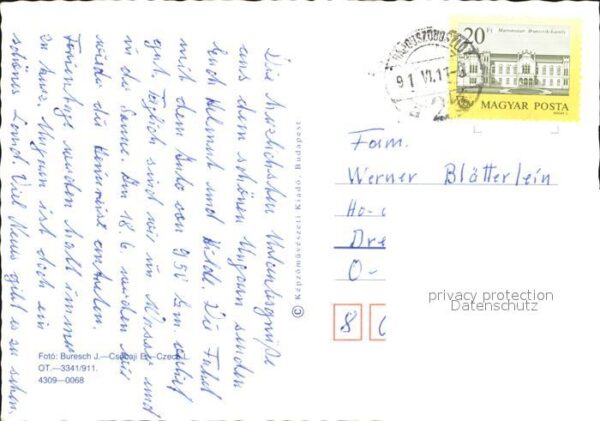 Die herzlichsten Urlaubsgrüße
aus dem schönen Ungarn senden
Euch Helmut und Hilde. Die Fahrt
mit dem Auto von 950 km verlief
gut. Täglich sind wir im Wasser und
in der Sonne. Am 18.6. werden wir
wieder die Heimreise antreten.
Ferientage werden halt immer
zu kurz. Ungarn ist doch ein
schönes Land. Viel Neues gibt es zu sehen.
Foto: Buresch J.—Csabai E.—Czech L.
OT.—3341/911.
4309—0068
© Képzőművészeti Kiadó, Budapest
HAJDUSZOBOSZLO
91 VI.11
20 Ft
Martonvásár Brunszvik-kastély
MAGYAR POSTA
Fam.
Werner Blätterlein
Ho-
Dre
O-
8
privacy protection
Datenschutz